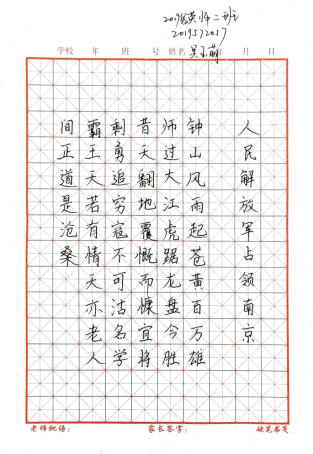 2019级英师二班
吴玉萌
学校 年 班 号 姓名 年 月 日
人民解放军占领南京
钟山风雨起苍黄百万雄
师过大江虎踞龙盘今胜
昔天翻地覆慨而慷宜将
剩勇追穷寇不可沽名学
霸王天若有情天亦老人
间正道是沧桑
老师批语： 家长签字： 硬笔书笺